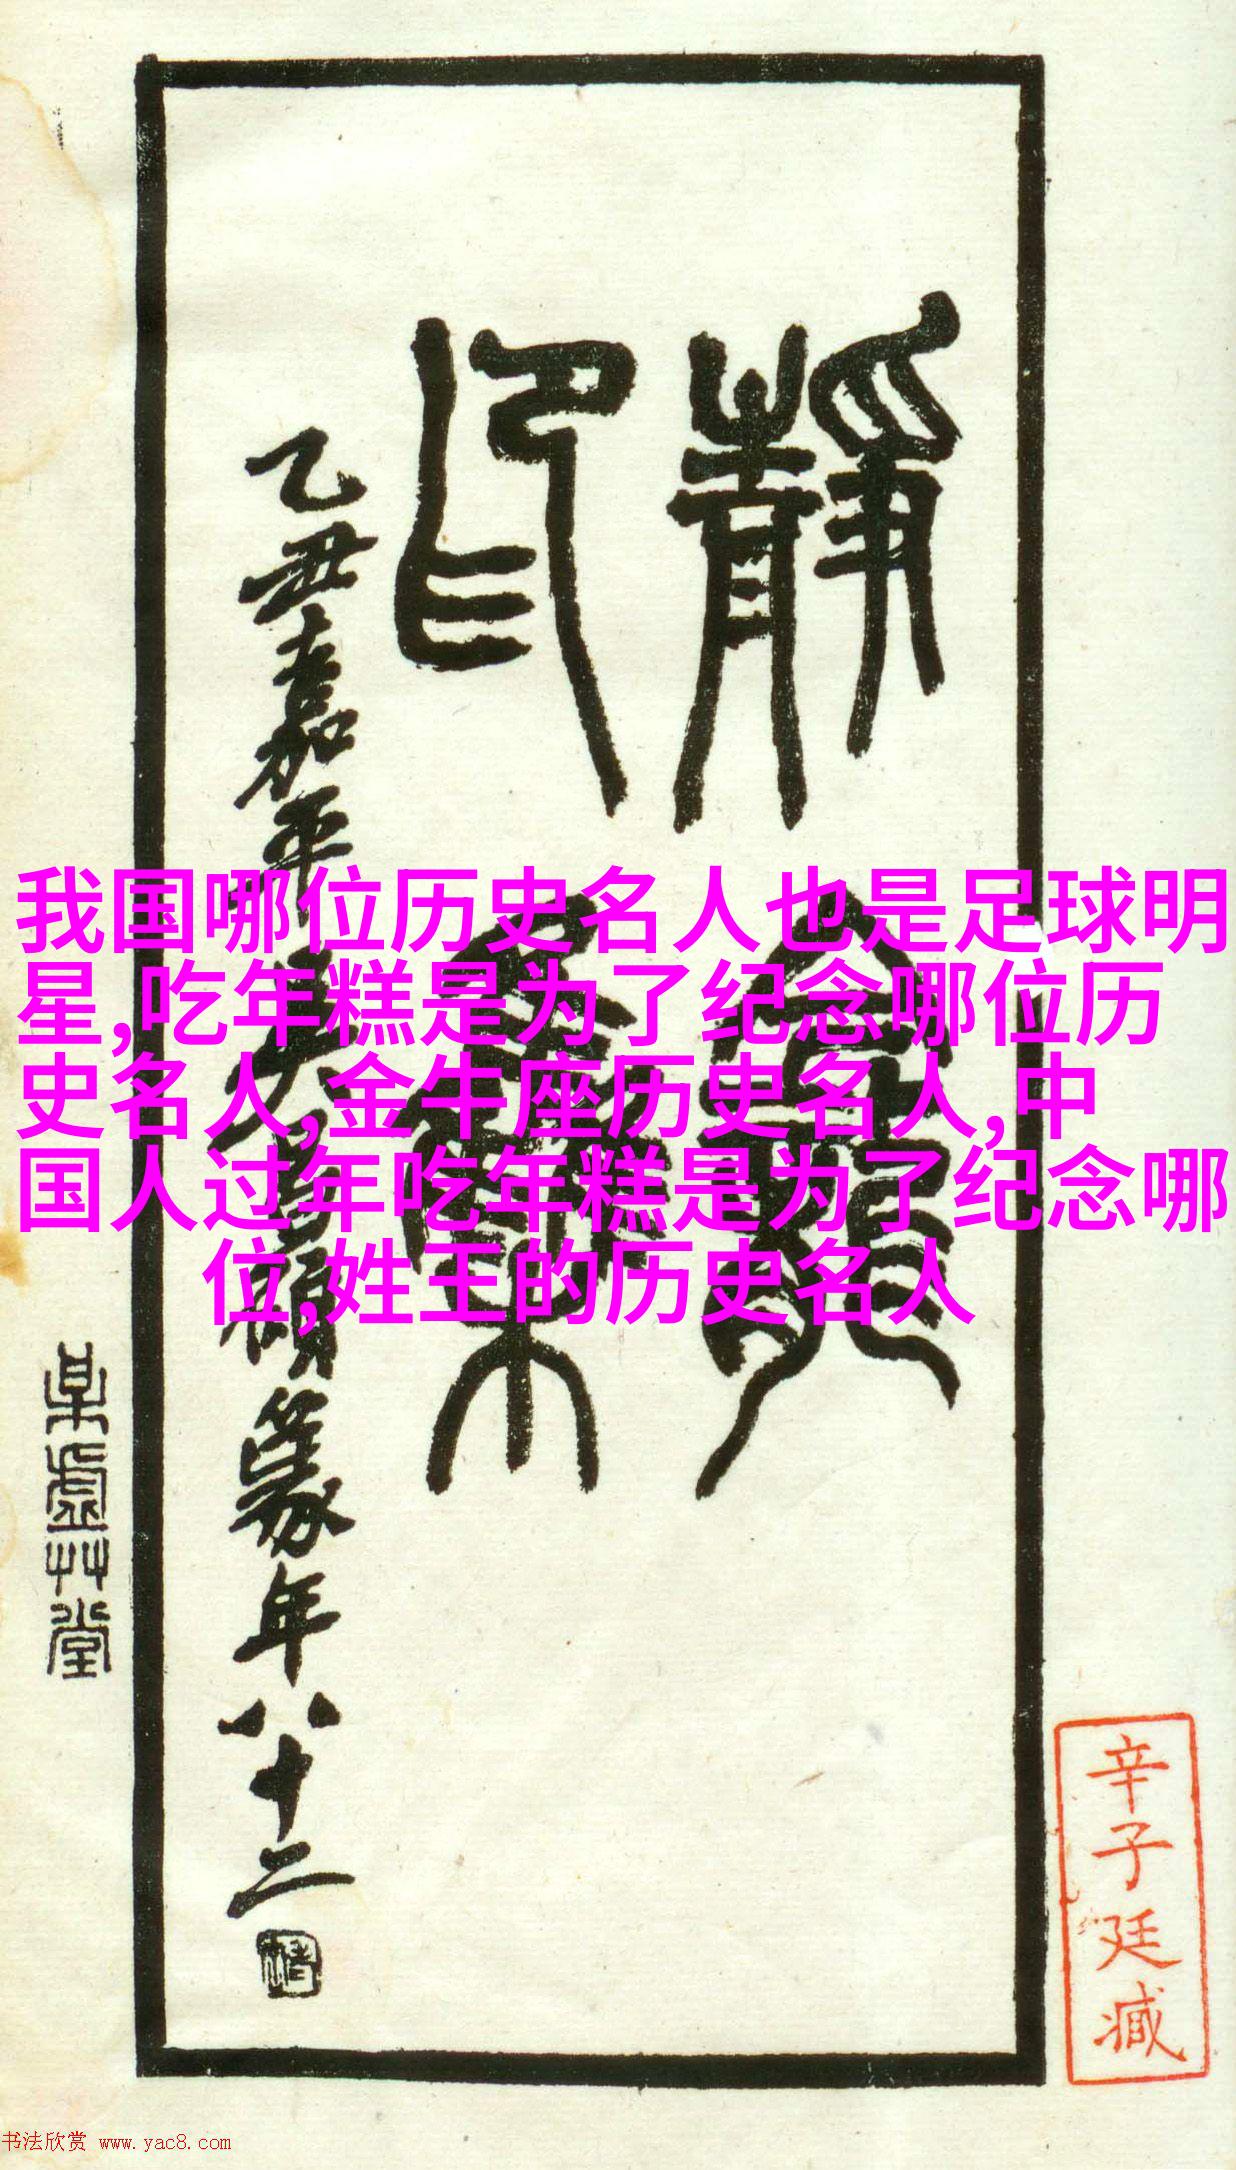 静龛
印集
乙丑嘉平
篆年八十二
我国哪位历史名人也是足球明
星,吃年糕是为了纪念哪位历
史名人,金牛座历史名人,中
国人过年吃年糕是为了纪念哪
位,姓王的历史名人
某虚草堂
辛子廷臧
书法欣赏 www.yac8.com